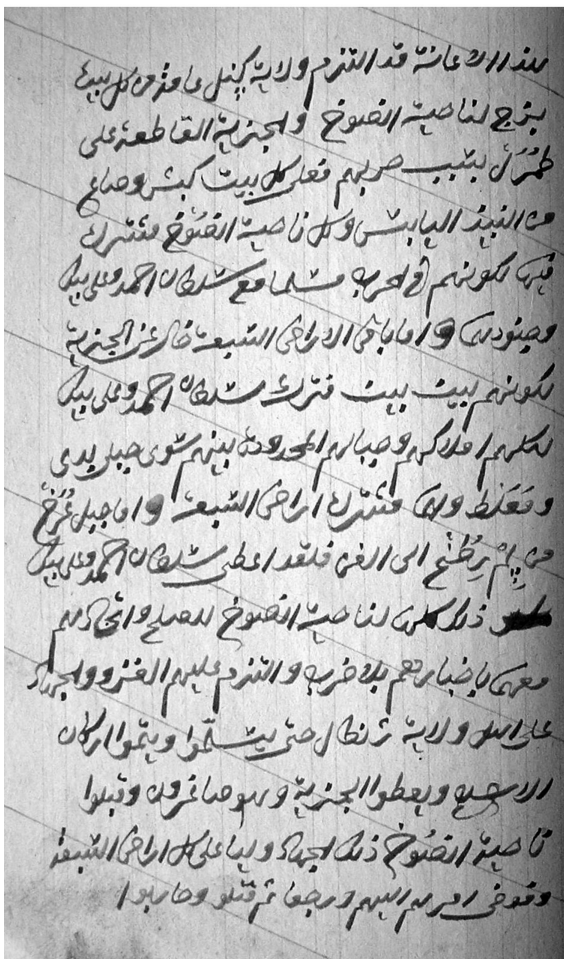 للمذاراك عانة قد التزم ولاية كپتل عامة من كل بيت
بزج لناحية انصوخ والجزية القاطعة على
طرزل بسبب حربهم فعلى كل بيت كبش وصاع
من النبذ اليابس وكل ناحية انصوخ مشترك
فيها لكونهم في الحرب مسلما مع سلطان احمد وعلى بيك
وجنودها واما باقى الاراضى السبعة خال عن الجزية
لكونهم بيت بيت فترك سلطان احمد وعلى بيك
لكلهم املاكهم وجبالهم المحدودة بينهم سوى جبل يدى
ومغلط ولها مشترك اراضى السبعة واما جبل غرخ
من الى الغرى فلقد اعطى سلطان احمد وعلى بيك
ذلك كلها لناحية انصوخ للصلح واتحادهم
معهما باختيارهم بلا ضرب والتزم عليهم الغزو والجهاد
على اهل ولاية زنطال حتى يسلموا ويتموا اركان
الاسلام ويعطوا الجزية وهو صاغرون وقبلوا
ناحية انصوخ ذلك الجهاد وليا على كل اراضى السبعة
وفوض امرهم اليهم ورجعا ثم قتلو وحاربوا